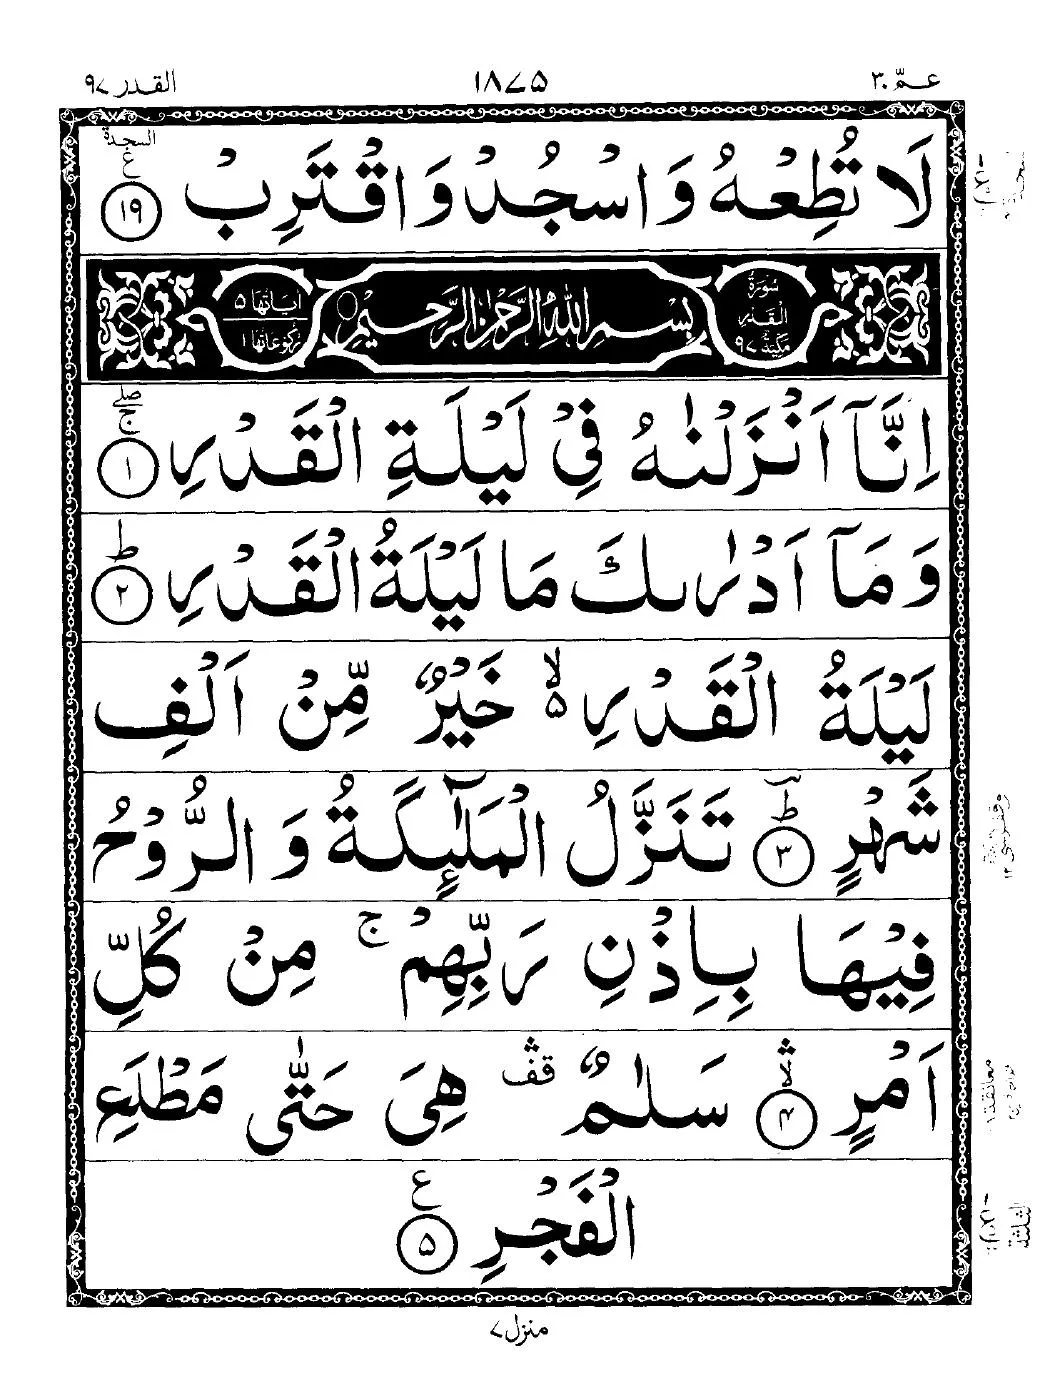 عـمّ ٣٠ ١٨٧٥ القدر ٩٧
السجدة
ع
لَا تُطِعْهُ وَاسْجُدْ وَاقْتَرِبْ ۝١٩
سُوْرَةُ الْقَدْرِ مَكِّيَّةٌ ٩٧ بِسْمِ اللّٰهِ الرَّحْمٰنِ الرَّحِيْمِ اٰيَاتُهَا ٥ رُكُوْعَاتُهَا ١
اِنَّاۤ اَنْزَلْنٰهُ فِیْ لَیْلَةِ الْقَدْرِ ۝١ صلے ج
وَ مَاۤ اَدْرٰىكَ مَا لَیْلَةُ الْقَدْرِ ۝٢ ط
لَیْلَةُ الْقَدْرِ ۙ۵ خَیْرٌ مِّنْ اَلْفِ
شَهْرٍ ۝٣ ط تَنَزَّلُ الْمَلٰٓىِٕكَةُ وَ الرُّوْحُ
فِیْهَا بِاِذْنِ رَبِّهِمْ ۚ مِنْ كُلِّ
اَمْرٍ ۝٤ سَلٰمٌ قف هِیَ حَتّٰى مَطْلَعِ
الْفَجْرِ ۝٥ ع
منزل ٧